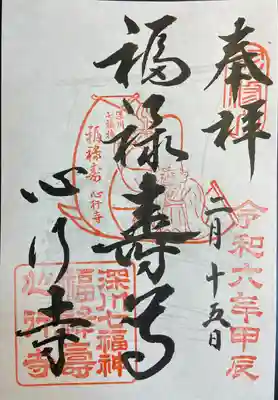 奉拝
令和六年甲辰
二月十五日
福禄寿尊
深川
七福神
福禄寿
心行寺
心行寺
深川七福神
福禄寿
心行寺